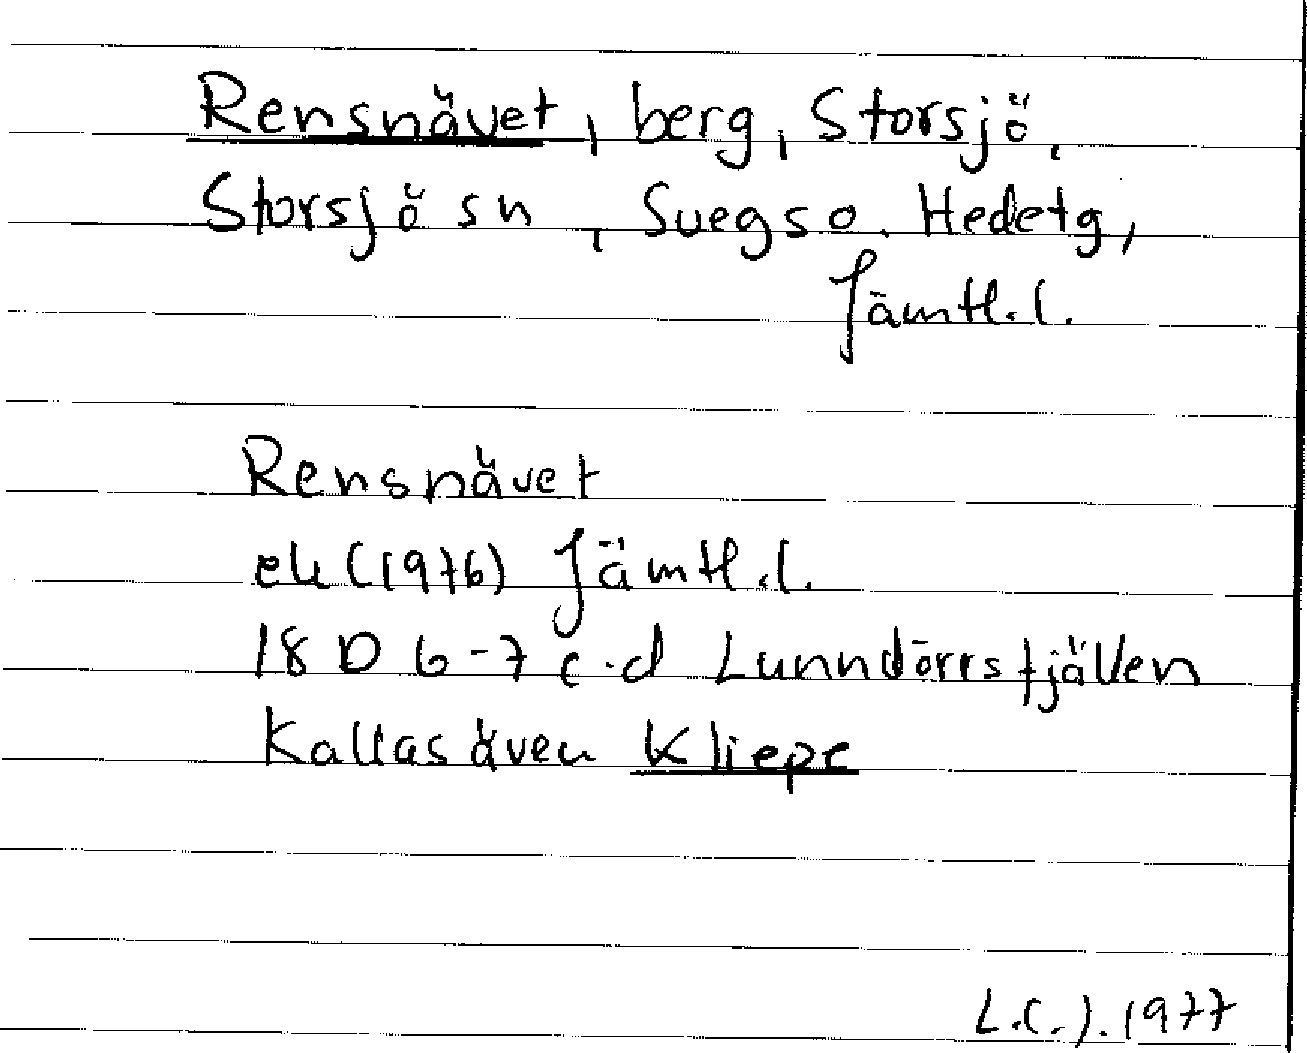 Rensnävet, berg, Storsjö,
Storsjö sn, Svegs o. Hedetg,
Jämtl.l.
Rensnävet
ek (1976) Jämtl.l.
18 D 6-7 c-d Lunndörrsfjällen
Kallas även Kliepe
L.C.J. 1977